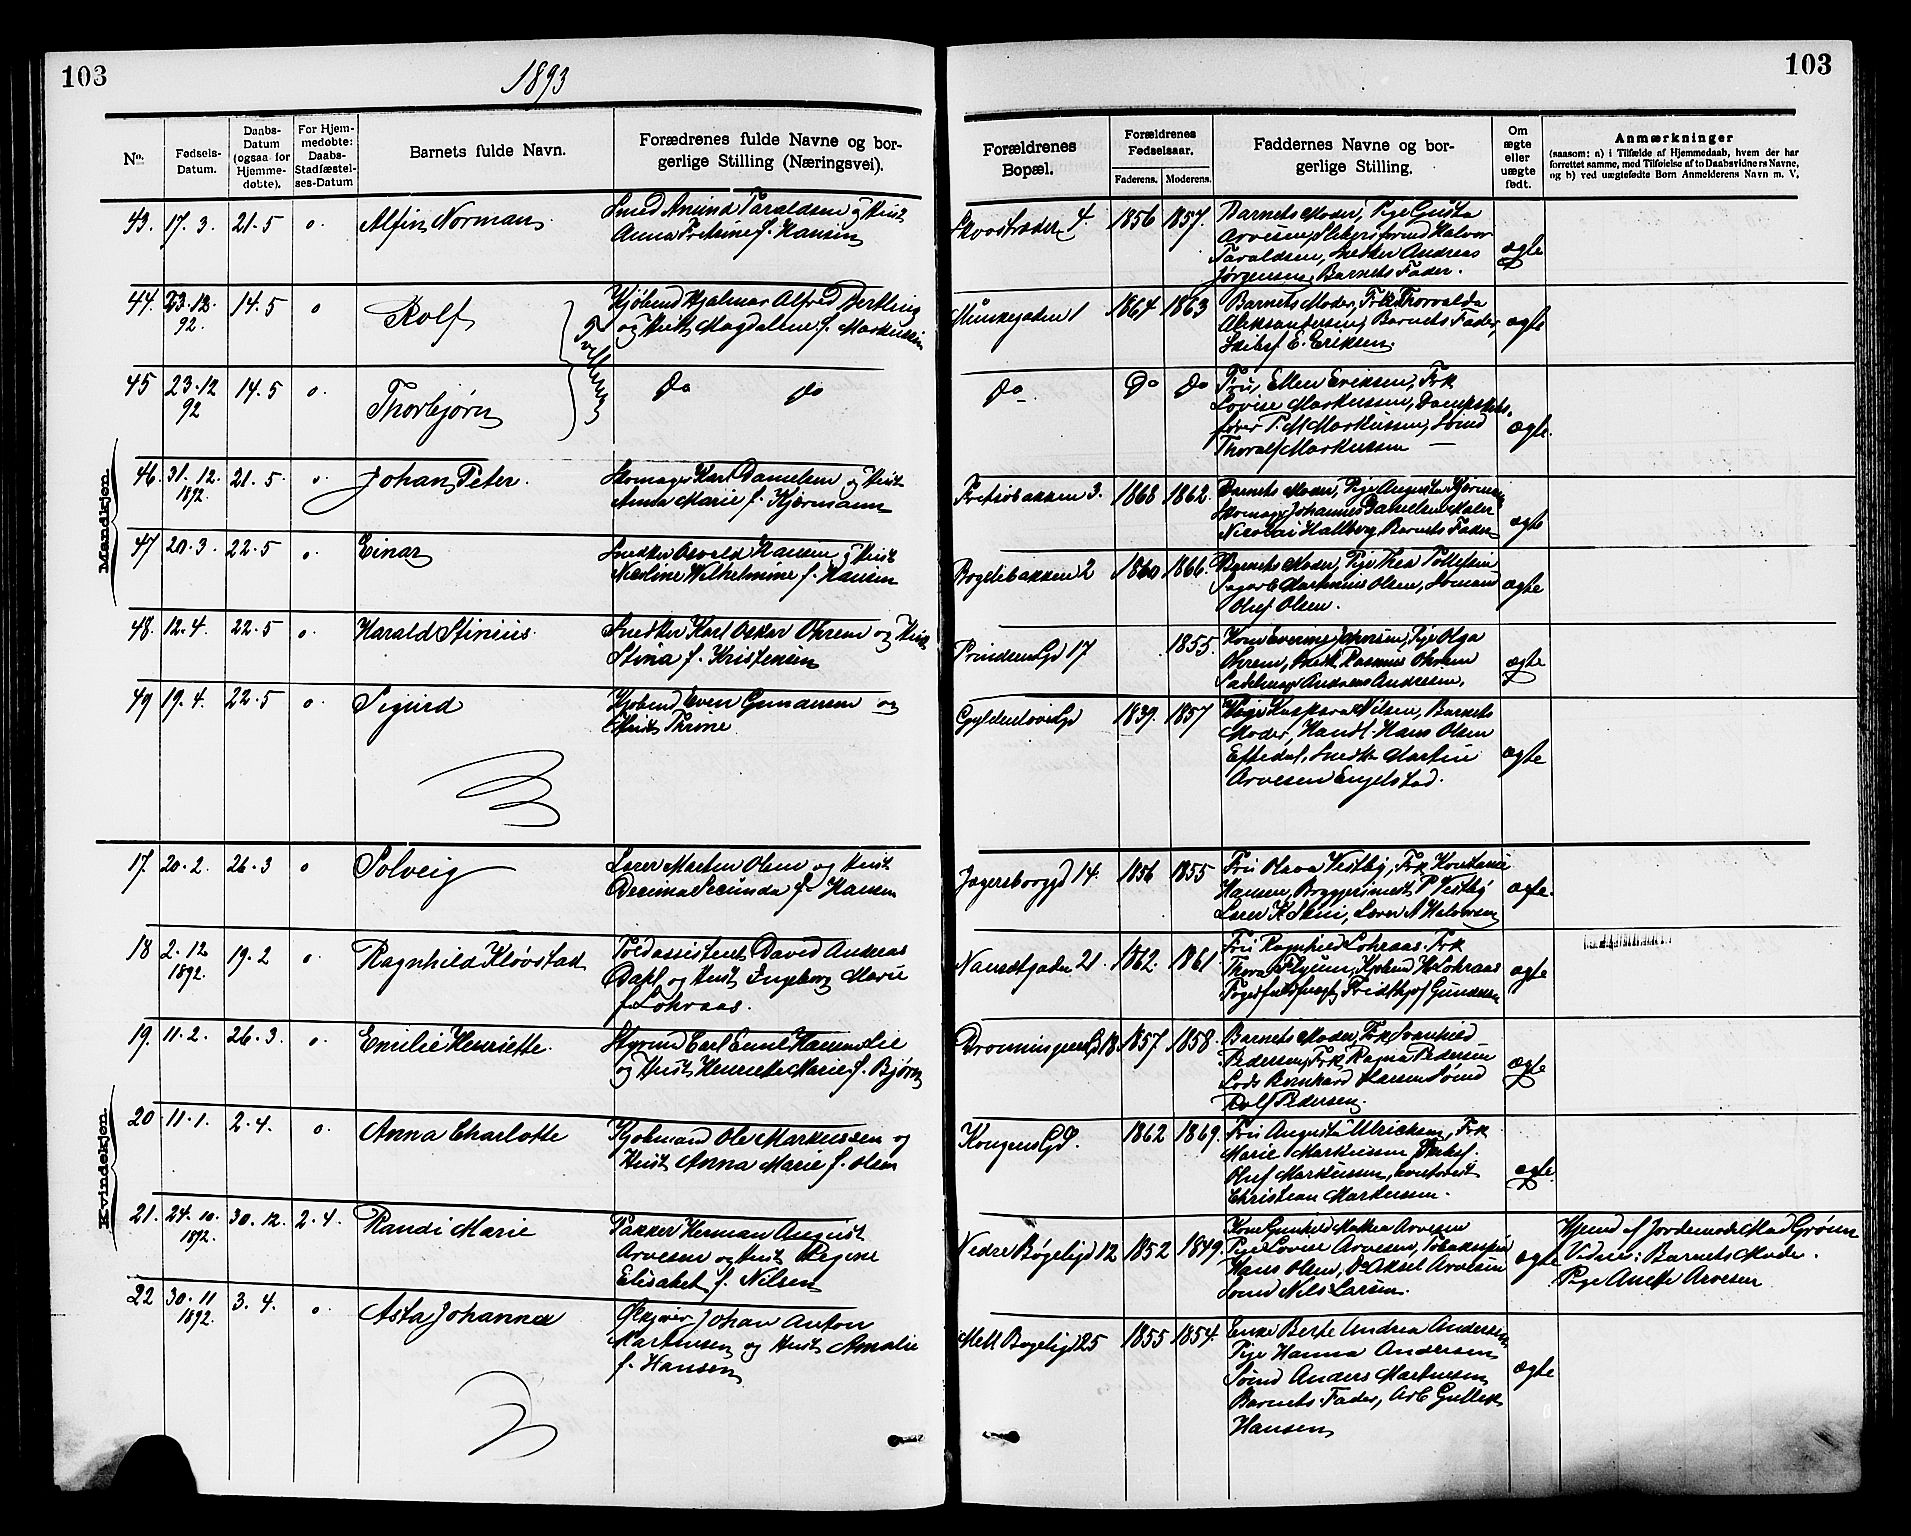 103
1893
103
No.
Fødsels-
Datum.
Daabs-
Datum
(ogsaa for
Hjemme-
døbte).
For Hjem-
medøbte:
Daabs-
Stadfæstel-
ses-Datum
Barnets fulde Navn.
Forædrenes fulde Navne og bor-
gerlige Stilling (Næringsvei).
Forældrenes
Bopæl.
Forældrenes
Fødselsaar.
Faderens.
Moderens.
Faddernes Navne og bor-
gerlige Stilling.
Om
ægte
eller
uægte
født.
Anmærkninger
(saasom: a) i Tilfælde af Hjemmedaab, hvem der har
forrettet samme, med Tilføielse af to Daabsvidners Navne,
og b) ved uægtefødte Børn Anmelderens Navn m. V.
Mandkjøn.
43. 17. 3. 21. 5 o. Alfin Norman.
Smed Anund Taraldsen og Hust
Anna Petrine f. Hansen
4. 1856 1857.
Barnets Moder, Pige Gusta
Arvesen, Halvor
Taraldsen, Snedker Andreas
Jørgensen, Barnets Fader.
ægte
44. 23. 12. 92. 14. 5 o Rolf
Tvillinger
Kjøbmd Hjalmar Alfred Bertling
og Hust Magdalene f. Markussen
Munkegaden 1 1864 1863
Barnets Moder, Frk Thorvalda
Aleksandersen, Barnets Fader,
Skibsf E. Eriksen.
ægte
45 23. 12 92 14. 5 o. Thorbjørn
do do
do do do
Fru Ellen Eriksen, Frk
Lovise Markussen, Dampskibs-
fører P. M Markussen, Sømd
Thoralf Markussen
ægte.
46. 31. 12. 1892. 21. 5 o Johan Peter.
Skomager Karl Danielsen og Hust
Anna Marie f. Kjørmann
3. 1868 1862.
Barnets Moder, Pige Augusta
Skomager Johannes Danielsen, Maler
Nicolai Hallberg, Barnets Fader
ægte
47 20. 3. 22. 5 o. Einar
Snedker Osvald Hansen og Hust
Nicoline Wilhelmine f. Hansen
Bøgelibakken 2 1860 1866.
Barnets Moder, Pige Thea Tollefsen
Martinius Olsen, Sømand
Oluf Olsen.
ægte
48. 12. 4. 22. 5 o. Harald Stinius.
Snedker Karl Oskar Ohrem og Hust
Stina f. Kristensen
Prindsens Gd 17 1855.
Pige Olga
Ohrem, Snedk. Rasmus Ohrem
Andreas Andresen.
ægte
49 19. 4. 22. 5 o. Sigurd
Kjøbmd Even Gundersen og
Hust Thrine
Gyldenløves Gd 1839. 1857
Nilsen, Barnets
Moder, Handl. Hans Olsen
Eftedal, Snedk Martin
Arvesen Engelstad.
ægte
Kvindekjøn.
17. 20. 2. 26. 3 o Solveig
Lærer Morten Olsen og Hust
Decima Secunda f. Hansen
Jægersborggd 14. 1856 1855
Fru Olava Vestby, Frk Konstance
Hansen, P Vestby
Lærer K Skui, Lærer A Halvorsen
ægte.
18 2. 12 1892. 19. 2 o. Ragnhild Kløvstad
Toldassistent David Andreas
Dahl og Hust Ingeborg Marie
f. Lohraas.
Nansetgaden 21. 1862. 1861.
Fru Ragnhild Lohraas. Frk
Thora Flyum, Kjøbmd H Lohraas
Fridthjof Gundersen
ægte
19. 11. 2. 26. 3. o. Emilie Henriette.
Styrmd Carl Emil Hansen Lie
og Hust Henriette Marie f. Bjørn
Dronningens Gd 18. 1857. 1858.
Barnets Moder, Frk Svanhild
Pedersen, Frk Ragna Pedersen
Lods Bernhard Larsen, Sømd
Rolf Pedersen.
ægte
20 11. 1. 2. 4. o. Anna Charlotte
Kjøbmand Ole Markussen og
Hust Anna Marie f. Olsen
Kongens Gd. 1862 1869.
Fru Augusta Ulricksen, Frk
Marie Markussen, Skibsf.
Oluf Markussen,
Christian Markussen.
ægte.
21. 24. 10. 1892. 30. 12. 2. 4. Randi Marie
Pakker Herman August
Arvesen og Hust Regine
Elisabet f. Nilsen
Nedre Bøgeligd 12 1852 1849.
Kone Gunhild Mathea Arvesen
Pige Lovise Arvesen,
Hans Olsen, Do Aksel Arvesen
Sømd Nils Larsen.
ægte
Hjemd af Jordemode Mad Grøun
Vidner: Barnets Moder.
Pige Anette Arvesen
22 30. 11 1892. 3. 4. o Asta Johanna
Johan Anton
Martinsen og Hust Amalie
f. Hansen
Mell Bøgeligd 25 1855 1854.
Enke Berte Andrea Andersen
Pige Hanna Andersen
Sømd Anders Martinsen
Barnets Fader, Arb Gullek
Hansen
ægte